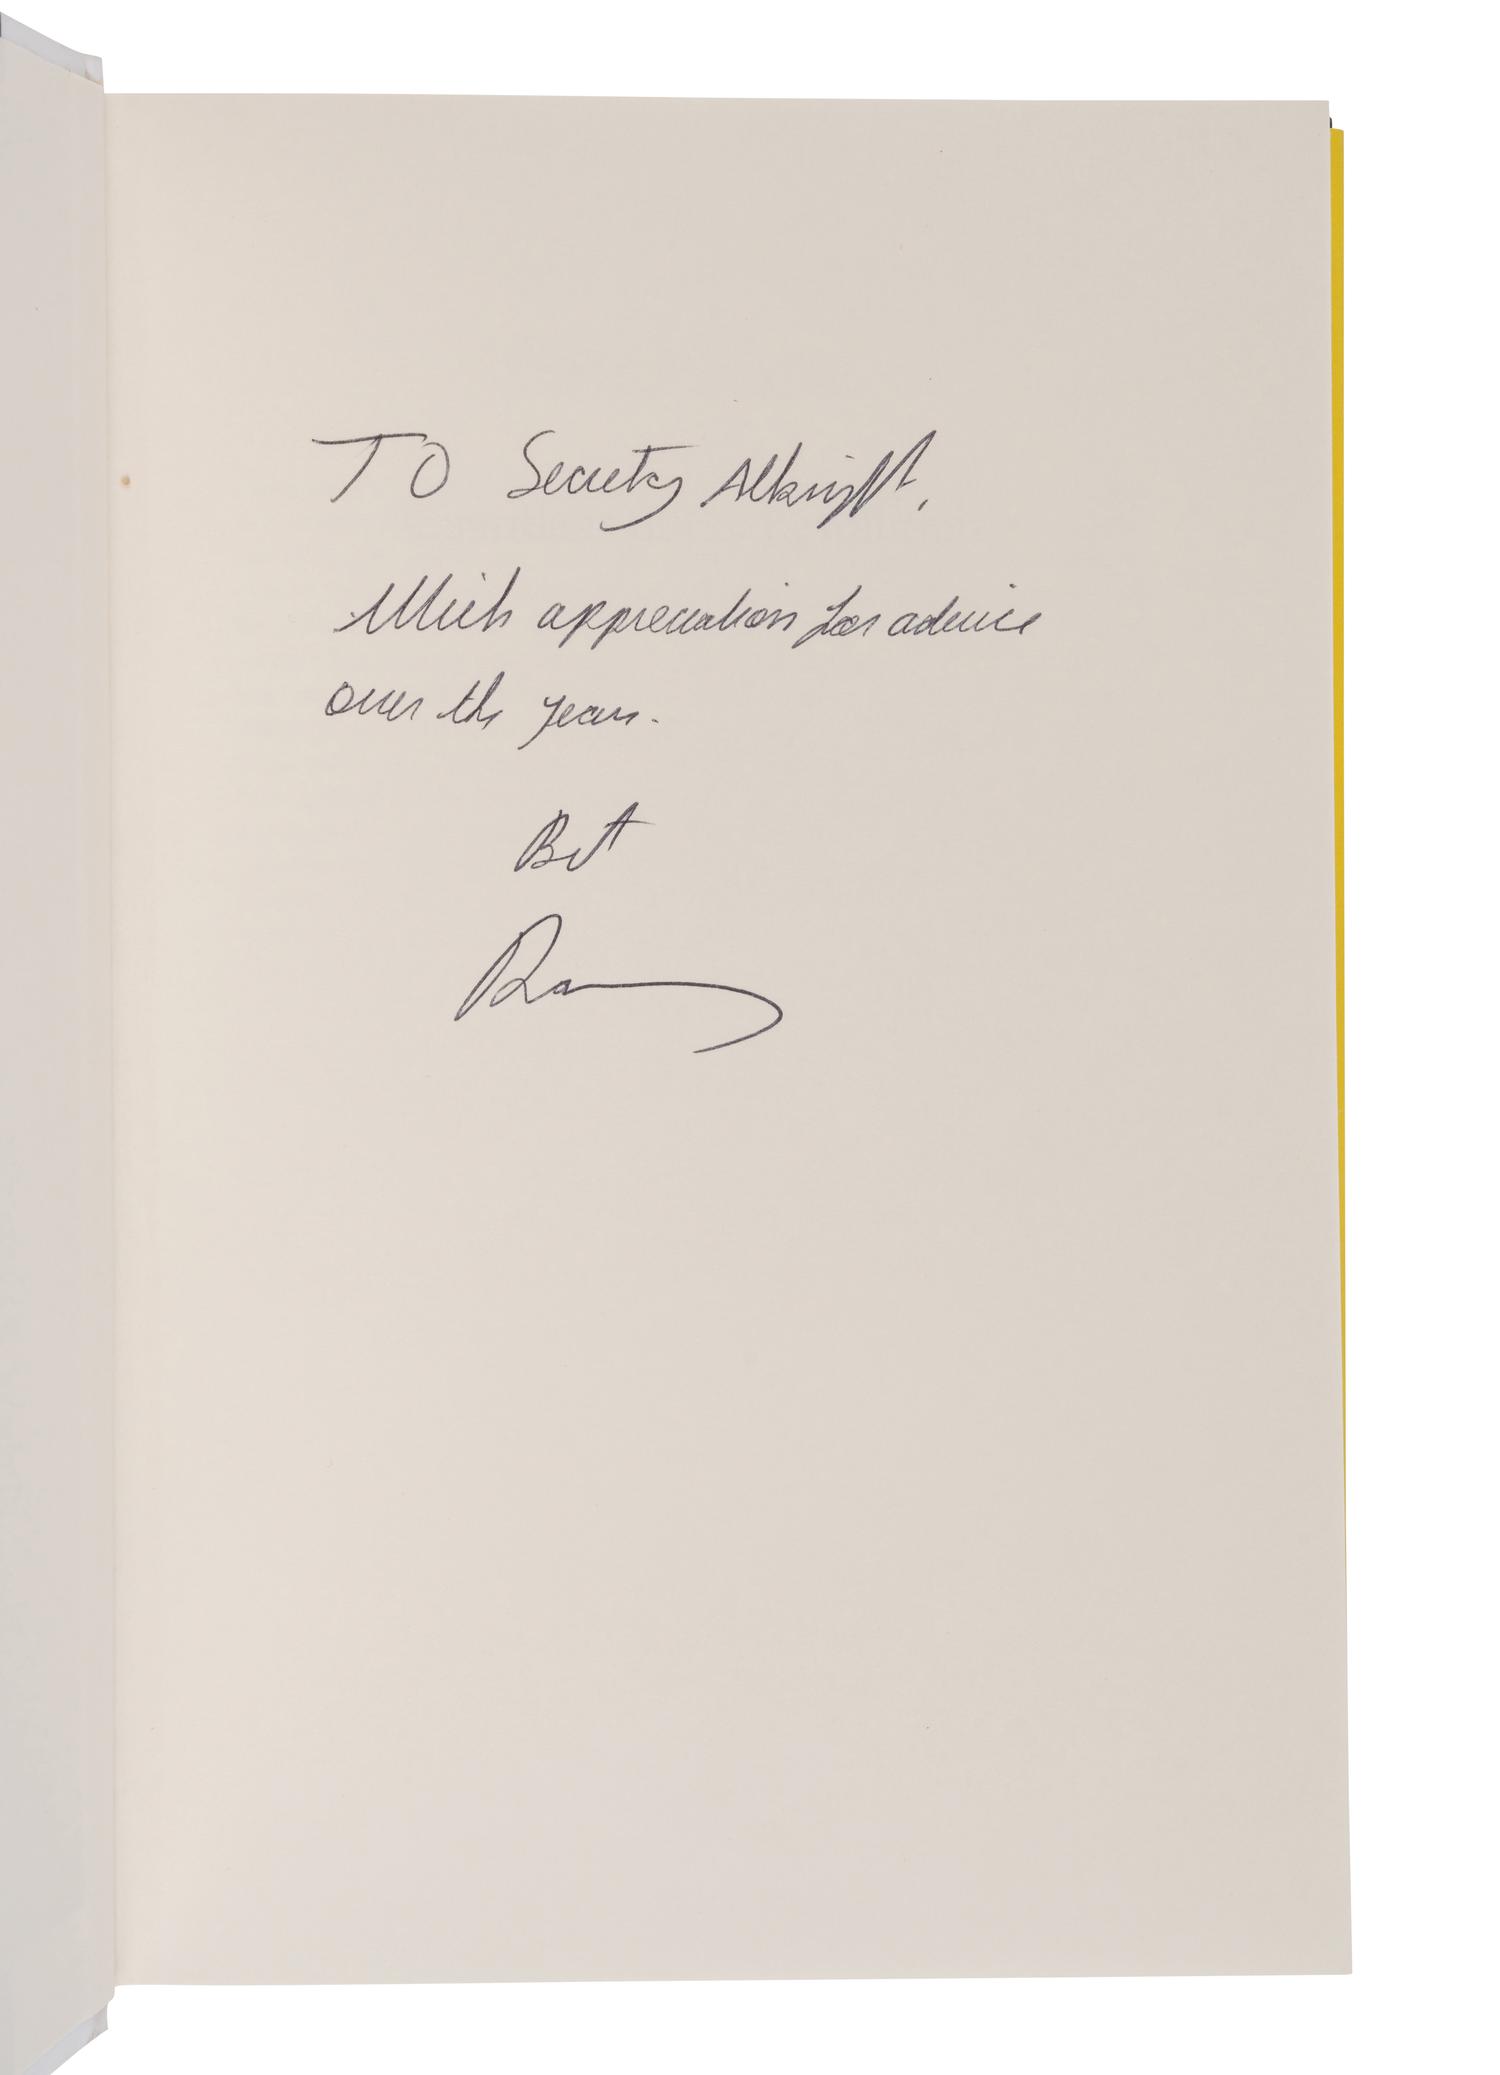 TO Secretary Albright,
With appreciation for advice
over the years.
Best